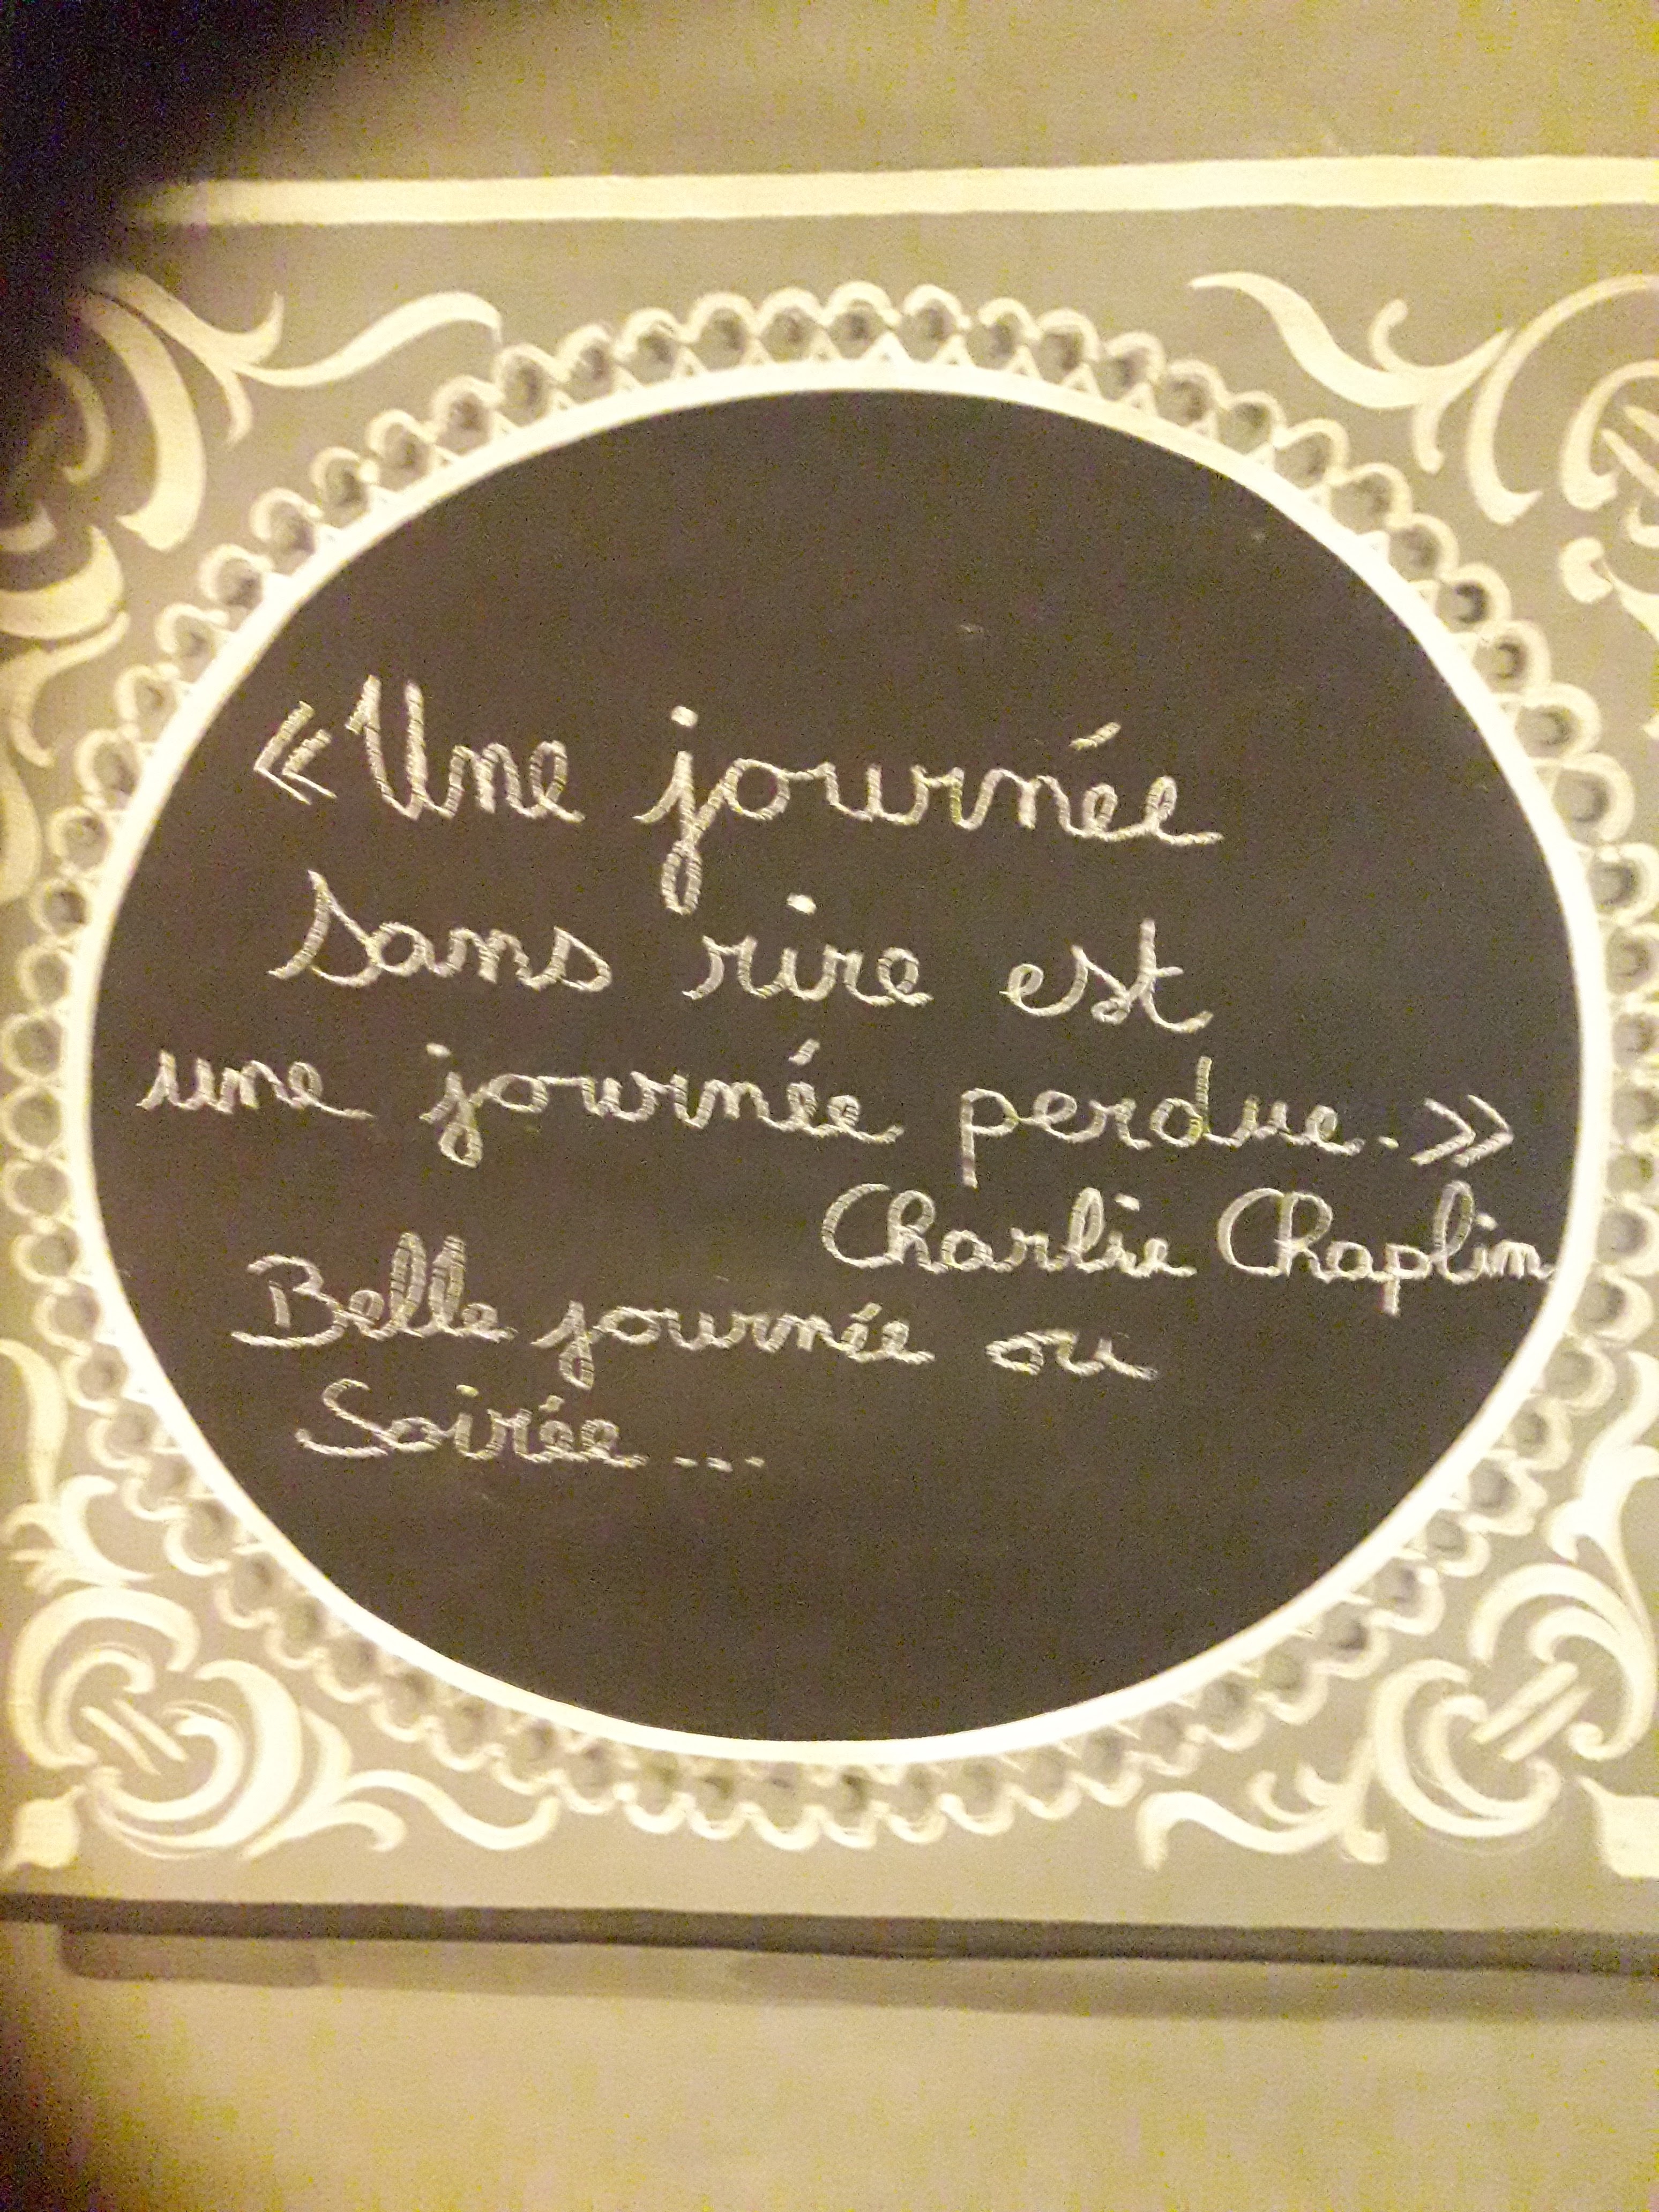 « Une journée
sans rire est
une journée perdue. »
Charlie Chaplin
Belle journée ou
Soirée...